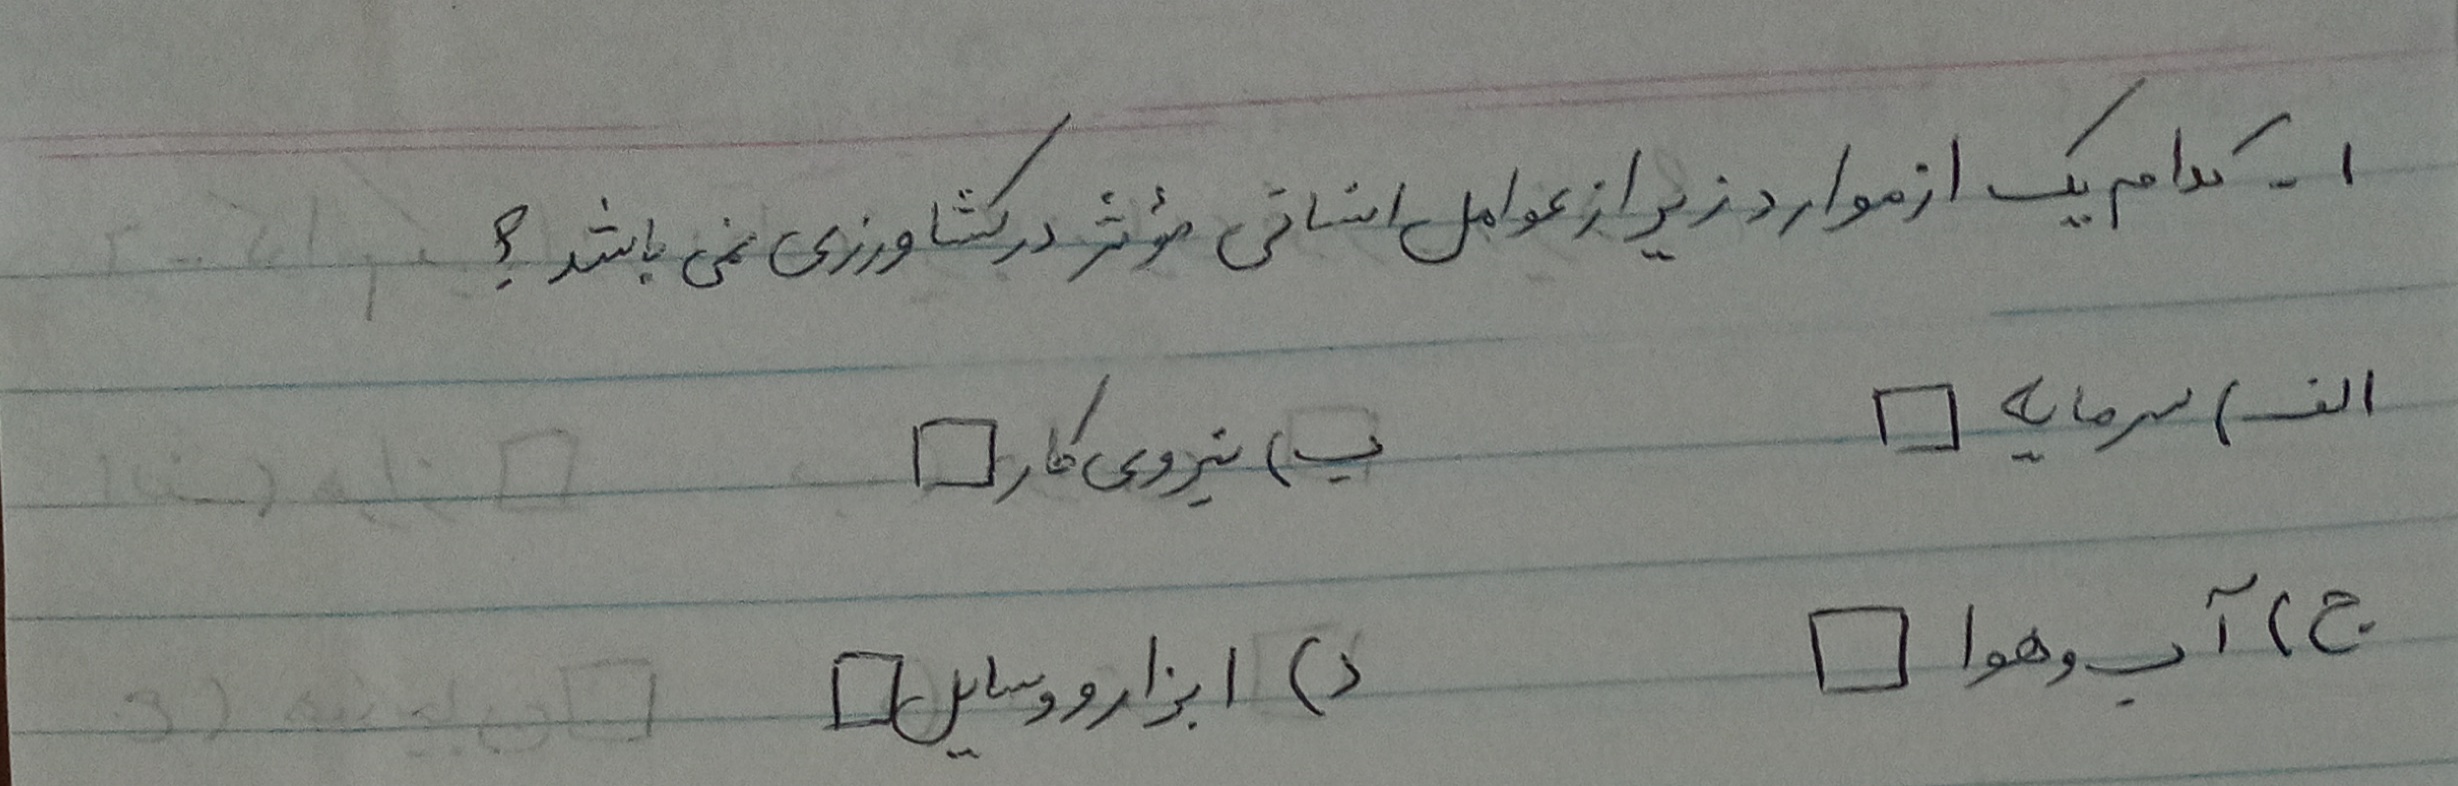 ۱- کدام یک از موارد زیر از عوامل انسانی مؤثر در کشاورزی نمی باشد؟
الف) سرمایه □ ب) نیروی کار □
ج) آب و هوا □ د) ابزار و وسایل □